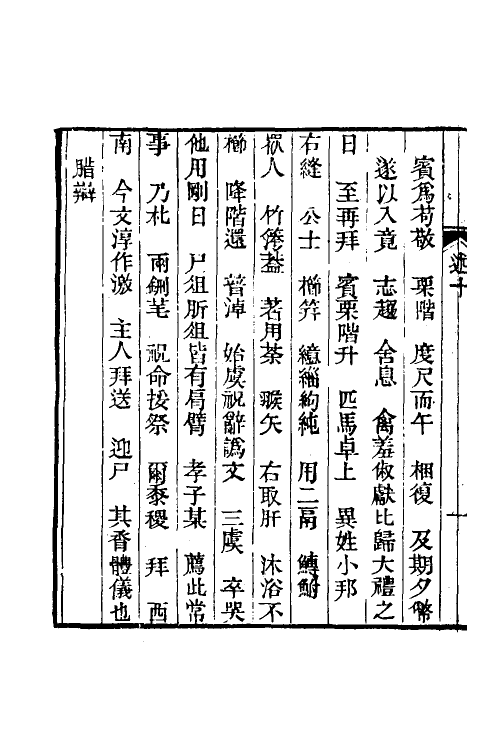 賓爲苟敬　栗階　度尺而午　梱復　及期夕幣
遂以入竟　志趨　舍息　禽羞俶獻比歸大禮之
日　至再拜　賓栗階升　匹馬卓上　異姓小邦
右縫　公士　櫛笄　繶緇絇純　用二鬲　鱄鮒
掀人　竹簝葢　若用茶　翭矢　右取肝　沐浴不
櫛　降階還　普淖　始虞祝辭譌文　三虞　卒哭
他用剛日　尸俎肵俎皆有肩臂　孝子某　薦此常
事　乃朼　兩鉶芼　祝命挼祭　爾黍稷　拜　西
南　今文淳作激　主人拜送　迎尸　其香體儀也
腊辯